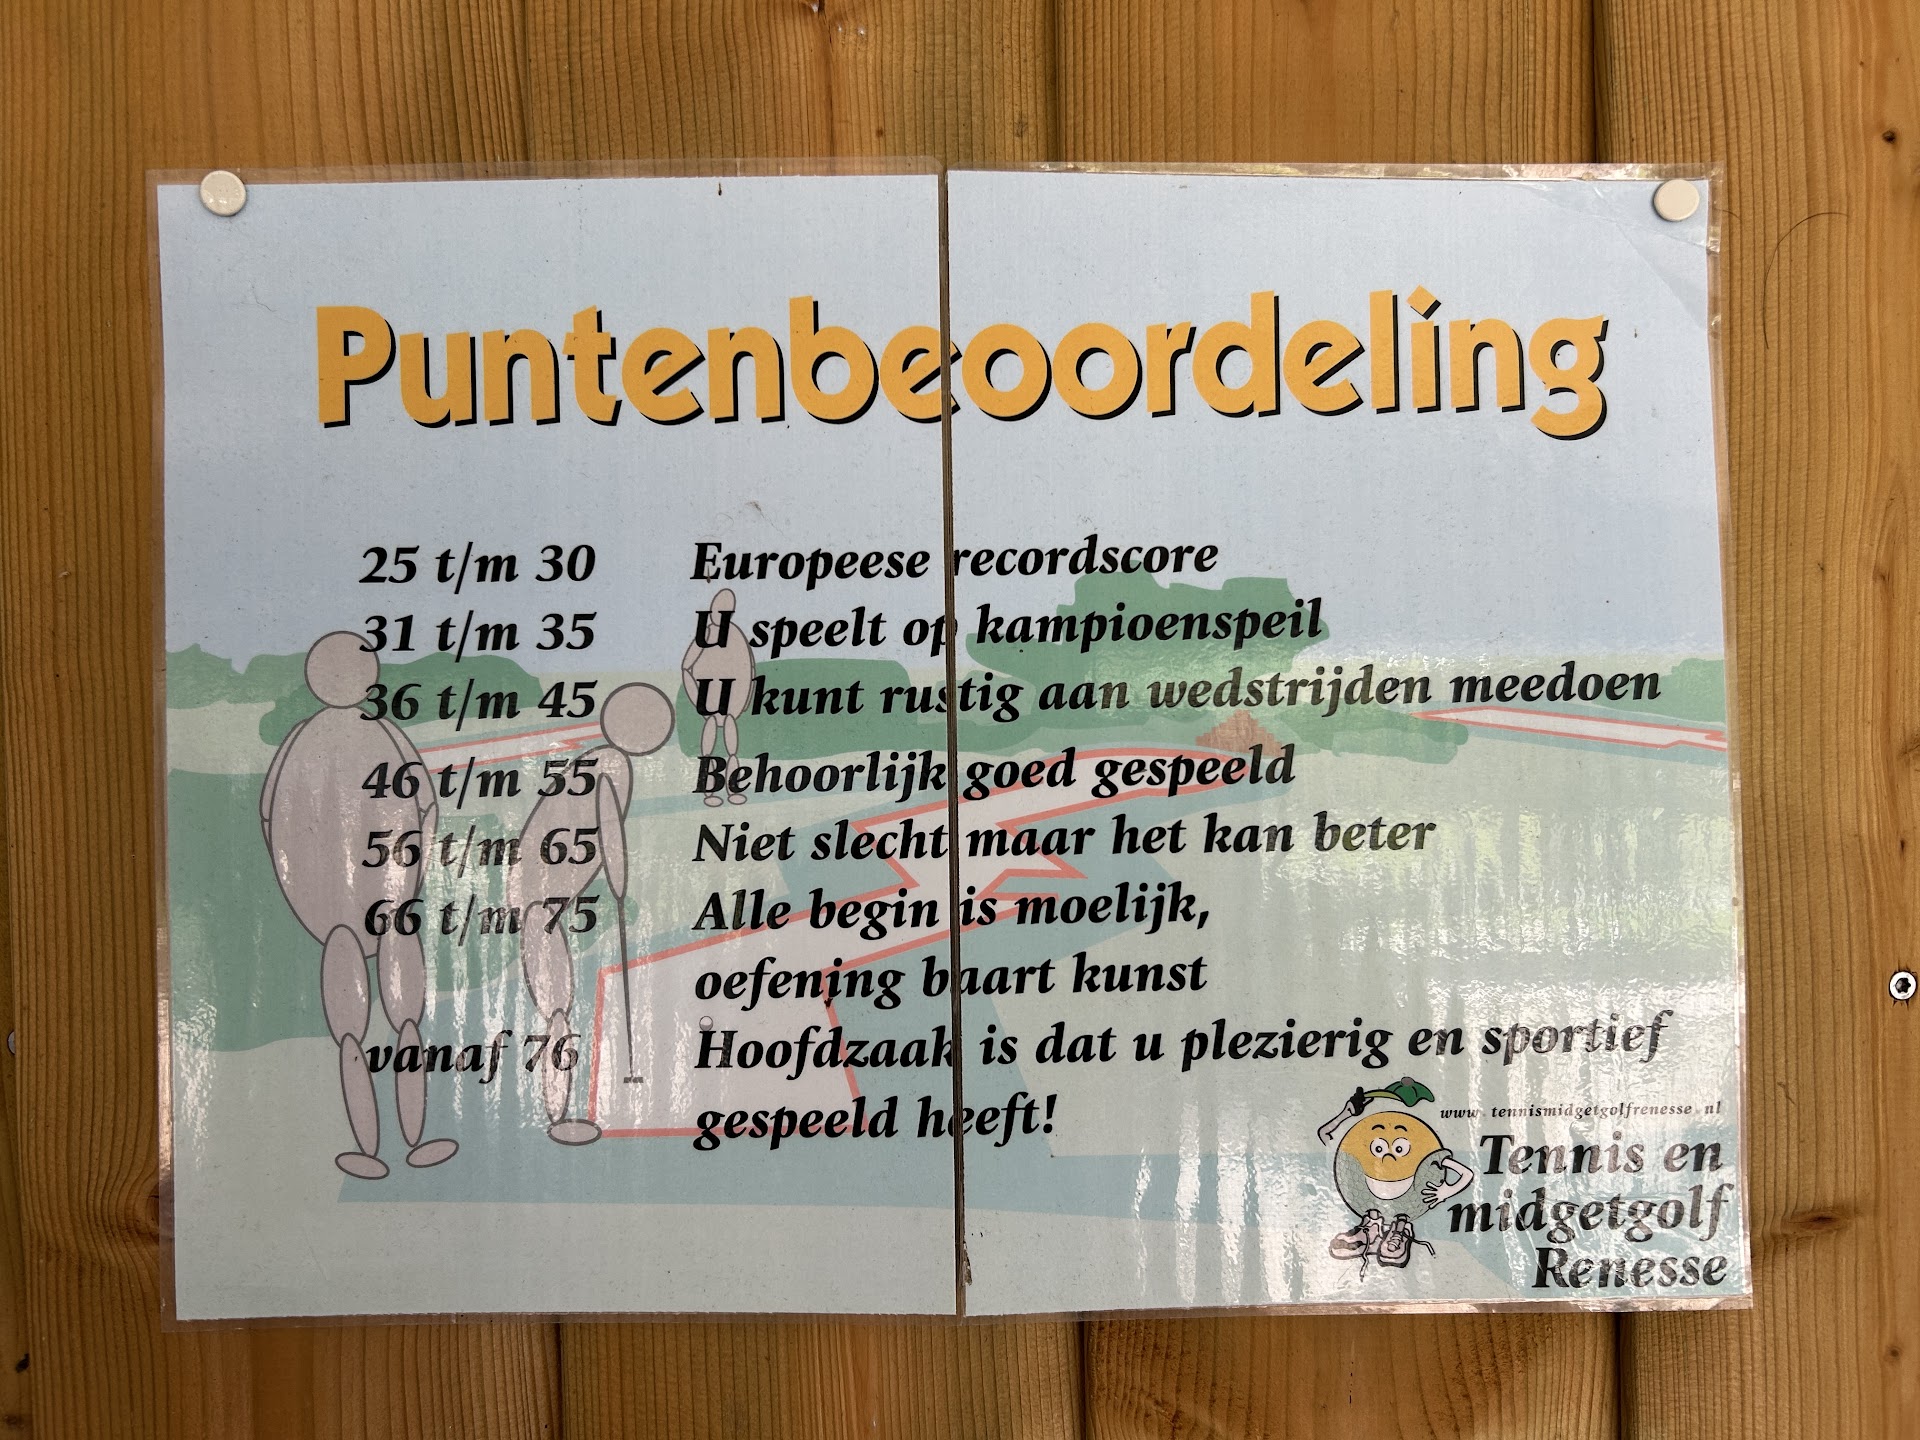 Puntenbeoordeling
25 t/m 30 Europeese recordscore
31 t/m 35 U speelt op kampioenspeil
36 t/m 45 U kunt rustig aan wedstrijden meedoen
46 t/m 55 Behoorlijk goed gespeeld
56 t/m 65 Niet slecht maar het kan beter
66 t/m 75 Alle begin is moelijk,
oefening baart kunst
vanaf 76 Hoofdzaak is dat u plezierig en sportief
gespeeld heeft!
www.tennismidgetgolfrenesse.nl
Tennis en
midgetgolf
Renesse